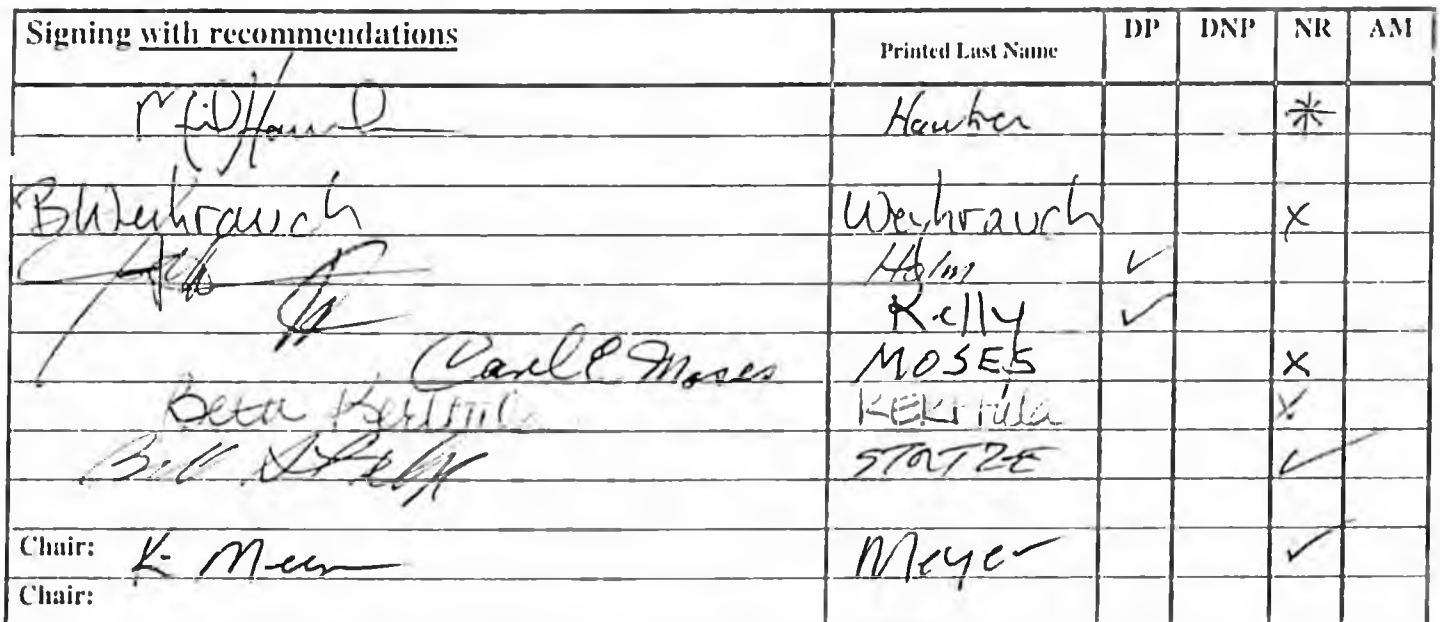 Signing with recommendations Printed Last Name DP DNP NR AM
Hawker *
B Weyhrauch Weyhrauch x
Holm ✓
Kelly ✓
Carl E Moses MOSES x
Beth Kerttula KERTTULA x
Bill STOLTZE ✓
Chair: K Meyer Meyer ✓
Chair: